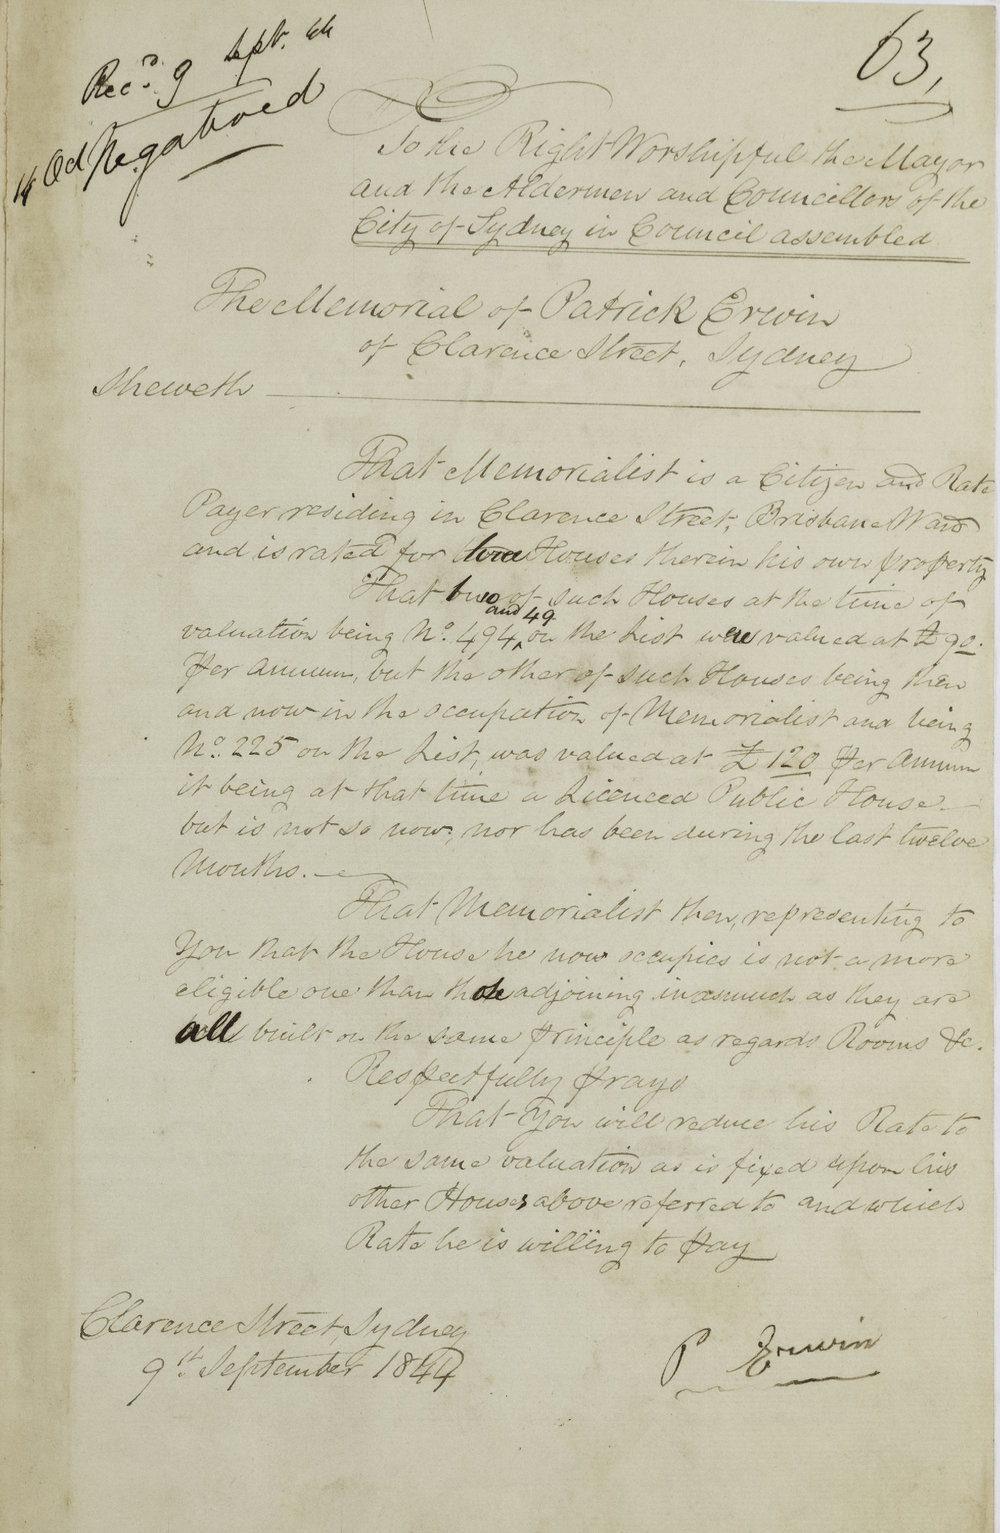 63,
Recd. 9 Sept. 44
14 Oct Negatived
To the Right Worshipful the Mayor
and the Aldermen and Councillors of the
City of Sydney in Council assembled
The Memorial of Patrick Erwin
of Clarence Street, Sydney
Sheweth
That Memorialist is a Citizen and Rate
Payer residing in Clarence Street, Brisbane Ward
and is rated for three Houses therein his own property
That two of such Houses at the time of
and 49
valuation being No. 494, on the List were valued at £90.
Per Annum, but the other of such Houses being then
and now in the occupation of Memorialist and being
No. 225 on the List, was valued at £120 Per Annum
it being at that time a Licenced Public House
but is not so now, nor has been during the last twelve
Months.
That Memorialist then, representing to
You that the House he now occupies is not a more
eligible one than those adjoining inasmuch as they are
all built on the same principle as regards Rooms &c.
Respectfully prays
That You will reduce his Rate to
the same valuation as is fixed upon his
other Houses above referred to and which
Rate he is willing to pay
Clarence Street, Sydney
9th September 1844
P Erwin